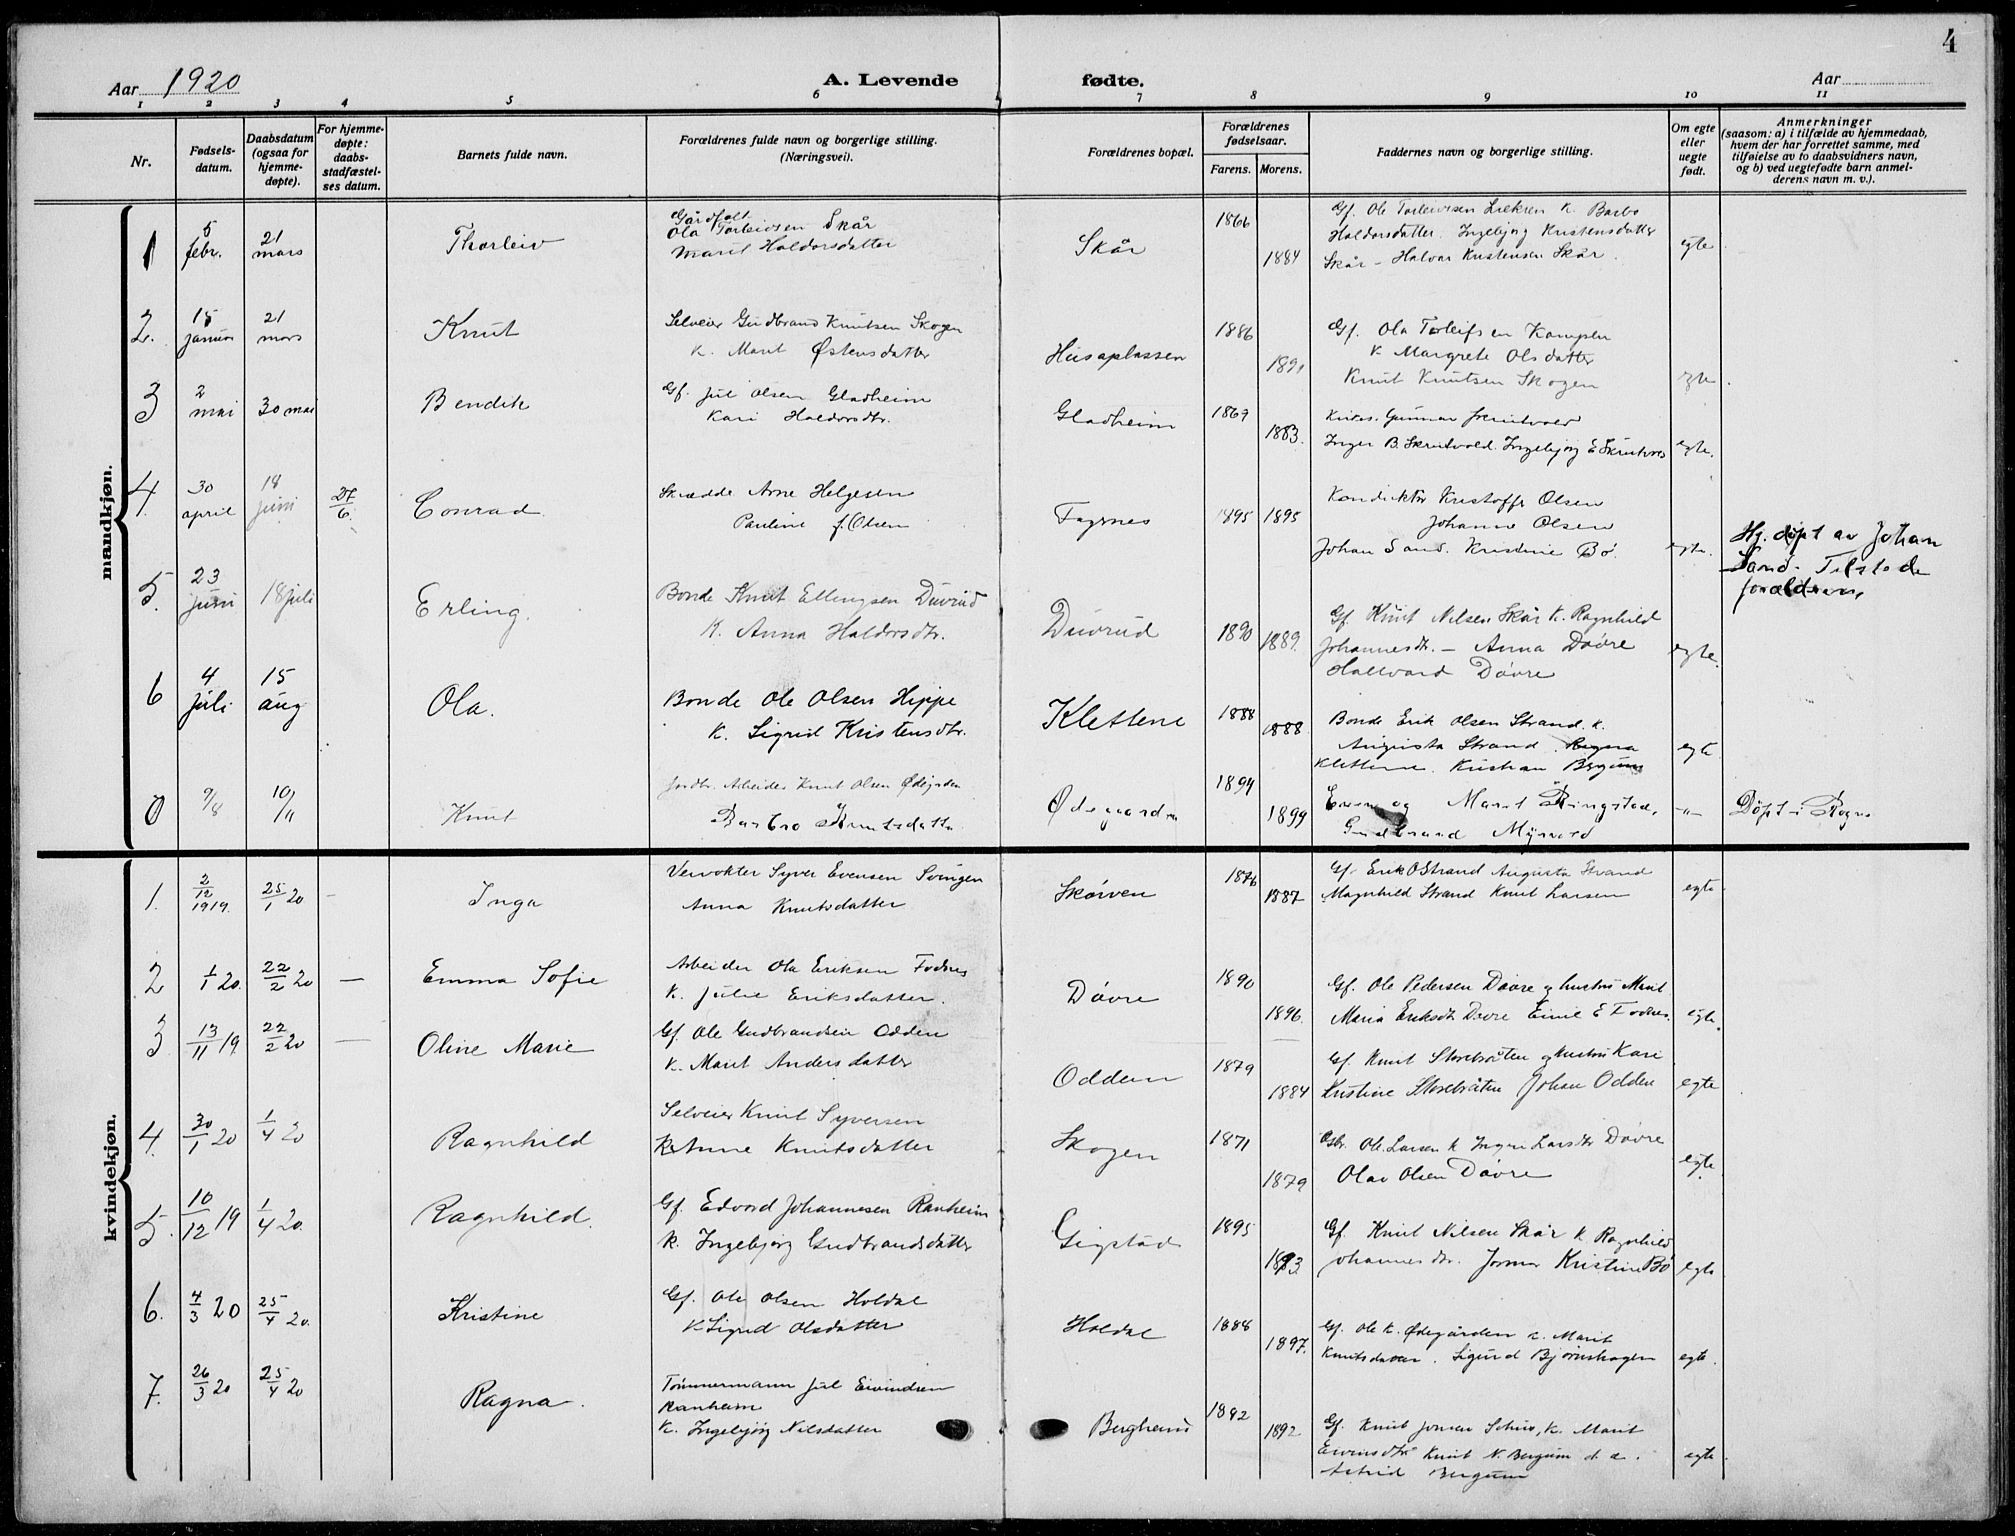 4
Aar 1920
A. Levende
fødte.
Aar
1 2 3 4 5 6 7 8 9 10 11
Nr.
Fødsels-
datum.
Daabsdatum
(ogsaa for
hjemme-
døpte).
For hjemme-
døpte:
daabs-
stadfæstel-
ses datum.
Barnets fulde navn.
Forældrenes fulde navn og borgerlige stilling.
(Næringsvei).
Forældrenes bopæl.
Forældrenes
fødselsaar.
Farens. Morens.
Faddernes navn og borgerlige stilling.
Om egte
eller
uegte
født.
Anmerkninger
(saasom: a) i tilfælde av hjemmedaab,
hvem der har forrettet samme, med
tilføielse av to daabsvidners navn,
og b) ved uegtefødte barn anmel-
derens navn m. v.).
mandkjøn.
1 5 febr. 21 mars Thorleiv
Ola Torleivsen Skår
Marit Haldorsdatter
Skår 1866 1884
Gf. Ole Torleivsen K. Barbo
Haldorsdatter. Ingebjørg Kristensdatter
Skår – Halvor Kristensen Skår.
egte
2. 15 januar 21 mars Knut
Selveier Gudbrand Knutsen Skogen
K. Marit Østensdatter
Husaplassen 1886 1891
Gf. Ola Torleifsen
K Margrete Olsdatter
Knut Knutsen Skogen
egte
3 2 mai 30 mai Bendik
Gf. Jul Olsen Gladheim
Kari Haldorsdtr.
Gladheim 1869 1883.
Gunnar Skrutvold
Inger B. Skrutvold. Ingebjørg E
egte.
4. 30 april 18 juni 27/6 Conrad
Arne Helgesen
Pauline f. Olsen
Fagernes 1895 1895
Konduktør Kristoffer Olsen
Johanne Olsen
Johan Sand. Kristine Bø.
egte.
Hj. døpt av Johan
Sand. Tilstede
forældrene,
5. 23 juni 18 juli Erling.
Bonde Knut Ellingsen Duvrud
K. Anna Haldorsdtr.
Duvrud 1890 1889.
Gf Knut Nilsen Skår K. Ragnhild
Johannesdtr. – Anna Døvre
Hallvard Døvre
egte.
6 4 juli 15 aug Ola.
Bonde Ole Olsen Hippe
K. Sigrid Kristensdtr.
Klettene 1888 1888
Bonde Erik Olsen Strand. K.
Augusta Strand. Ragna
Klettene. Kristian Bergum
egte
0 9/8 10/11 Knut
Jordbr. Arbeider Knut Olsen
Barbro Knutsdatter
Ødegaarden 1894 1899
og Marit Ringstad,
Gudbrand Myrvold
–"– Døpt i Rogne
kvindekjøn.
1. 2/12 1919. 25/1 20 – Inga
Syver Evensen Svingen
Anna Knutsdatter
Skøiven 1876 1887
Gf. Erik O Strand Augusta Strand
Magnhild Strand Knut Larsen
egte
2 1/1 20. 22/2 20 — Emma Sofie
Arbeider Ola Eriksen Fodnes
K. Julie Eriksdatter.
Døvre 1890 1896.
Gf. Ole Pedersen Døvre og hustru Marit
Maria Eriksdtr Døvre E Fodnes.
egte.
3. 13/11 19. 22/2 20 — Oline Marie
Gf. Ole Gudbrandsen Odden
K. Marit Andersdatter
Odden 1879 1884
Gf. Knut Storebråten og hustru Kari
Kristine Storebråten Johan Odden
egte
4. 30/1 20 1/4 20 Ragnhild
Selveier Knut Syversen
K Anne Knutsdatter
Skogen 1871 1879
Ole Larsen K Ingri Larsdtr Døvre
Olav Olsen Døvre
egte.
5. 10/12 19 1/4 20. Ragnhild.
Gf. Edvard Johannesen Ranheim
K. Ingebjørg Gudbrandsdatter
Gigstad 1895 1893.
Gf. Knut Nilsen Skår K. Ragnhild
Johannesdtr. Kristine Bø
egte
6. 4/3 20 25/4 20. Kristine
Gf. Ole Olsen Holdal
K Sigrid Olsdatter
Holdal 1888 1897.
Gf. Ole K. Ødegården K. Marit
Knutsdatter. Sigurd Bjørnhagen
egte.
7. 26/3 20 25/4 20 Ragna.
Tømmermann Jul Eivindsen
Ranheim
K. Ingebjørg Nilsdatter
Bergheim 1892 1892
Gf. Knut Jonsen K. Marit
Knut N. Bergum
Astrid Bergum
egte